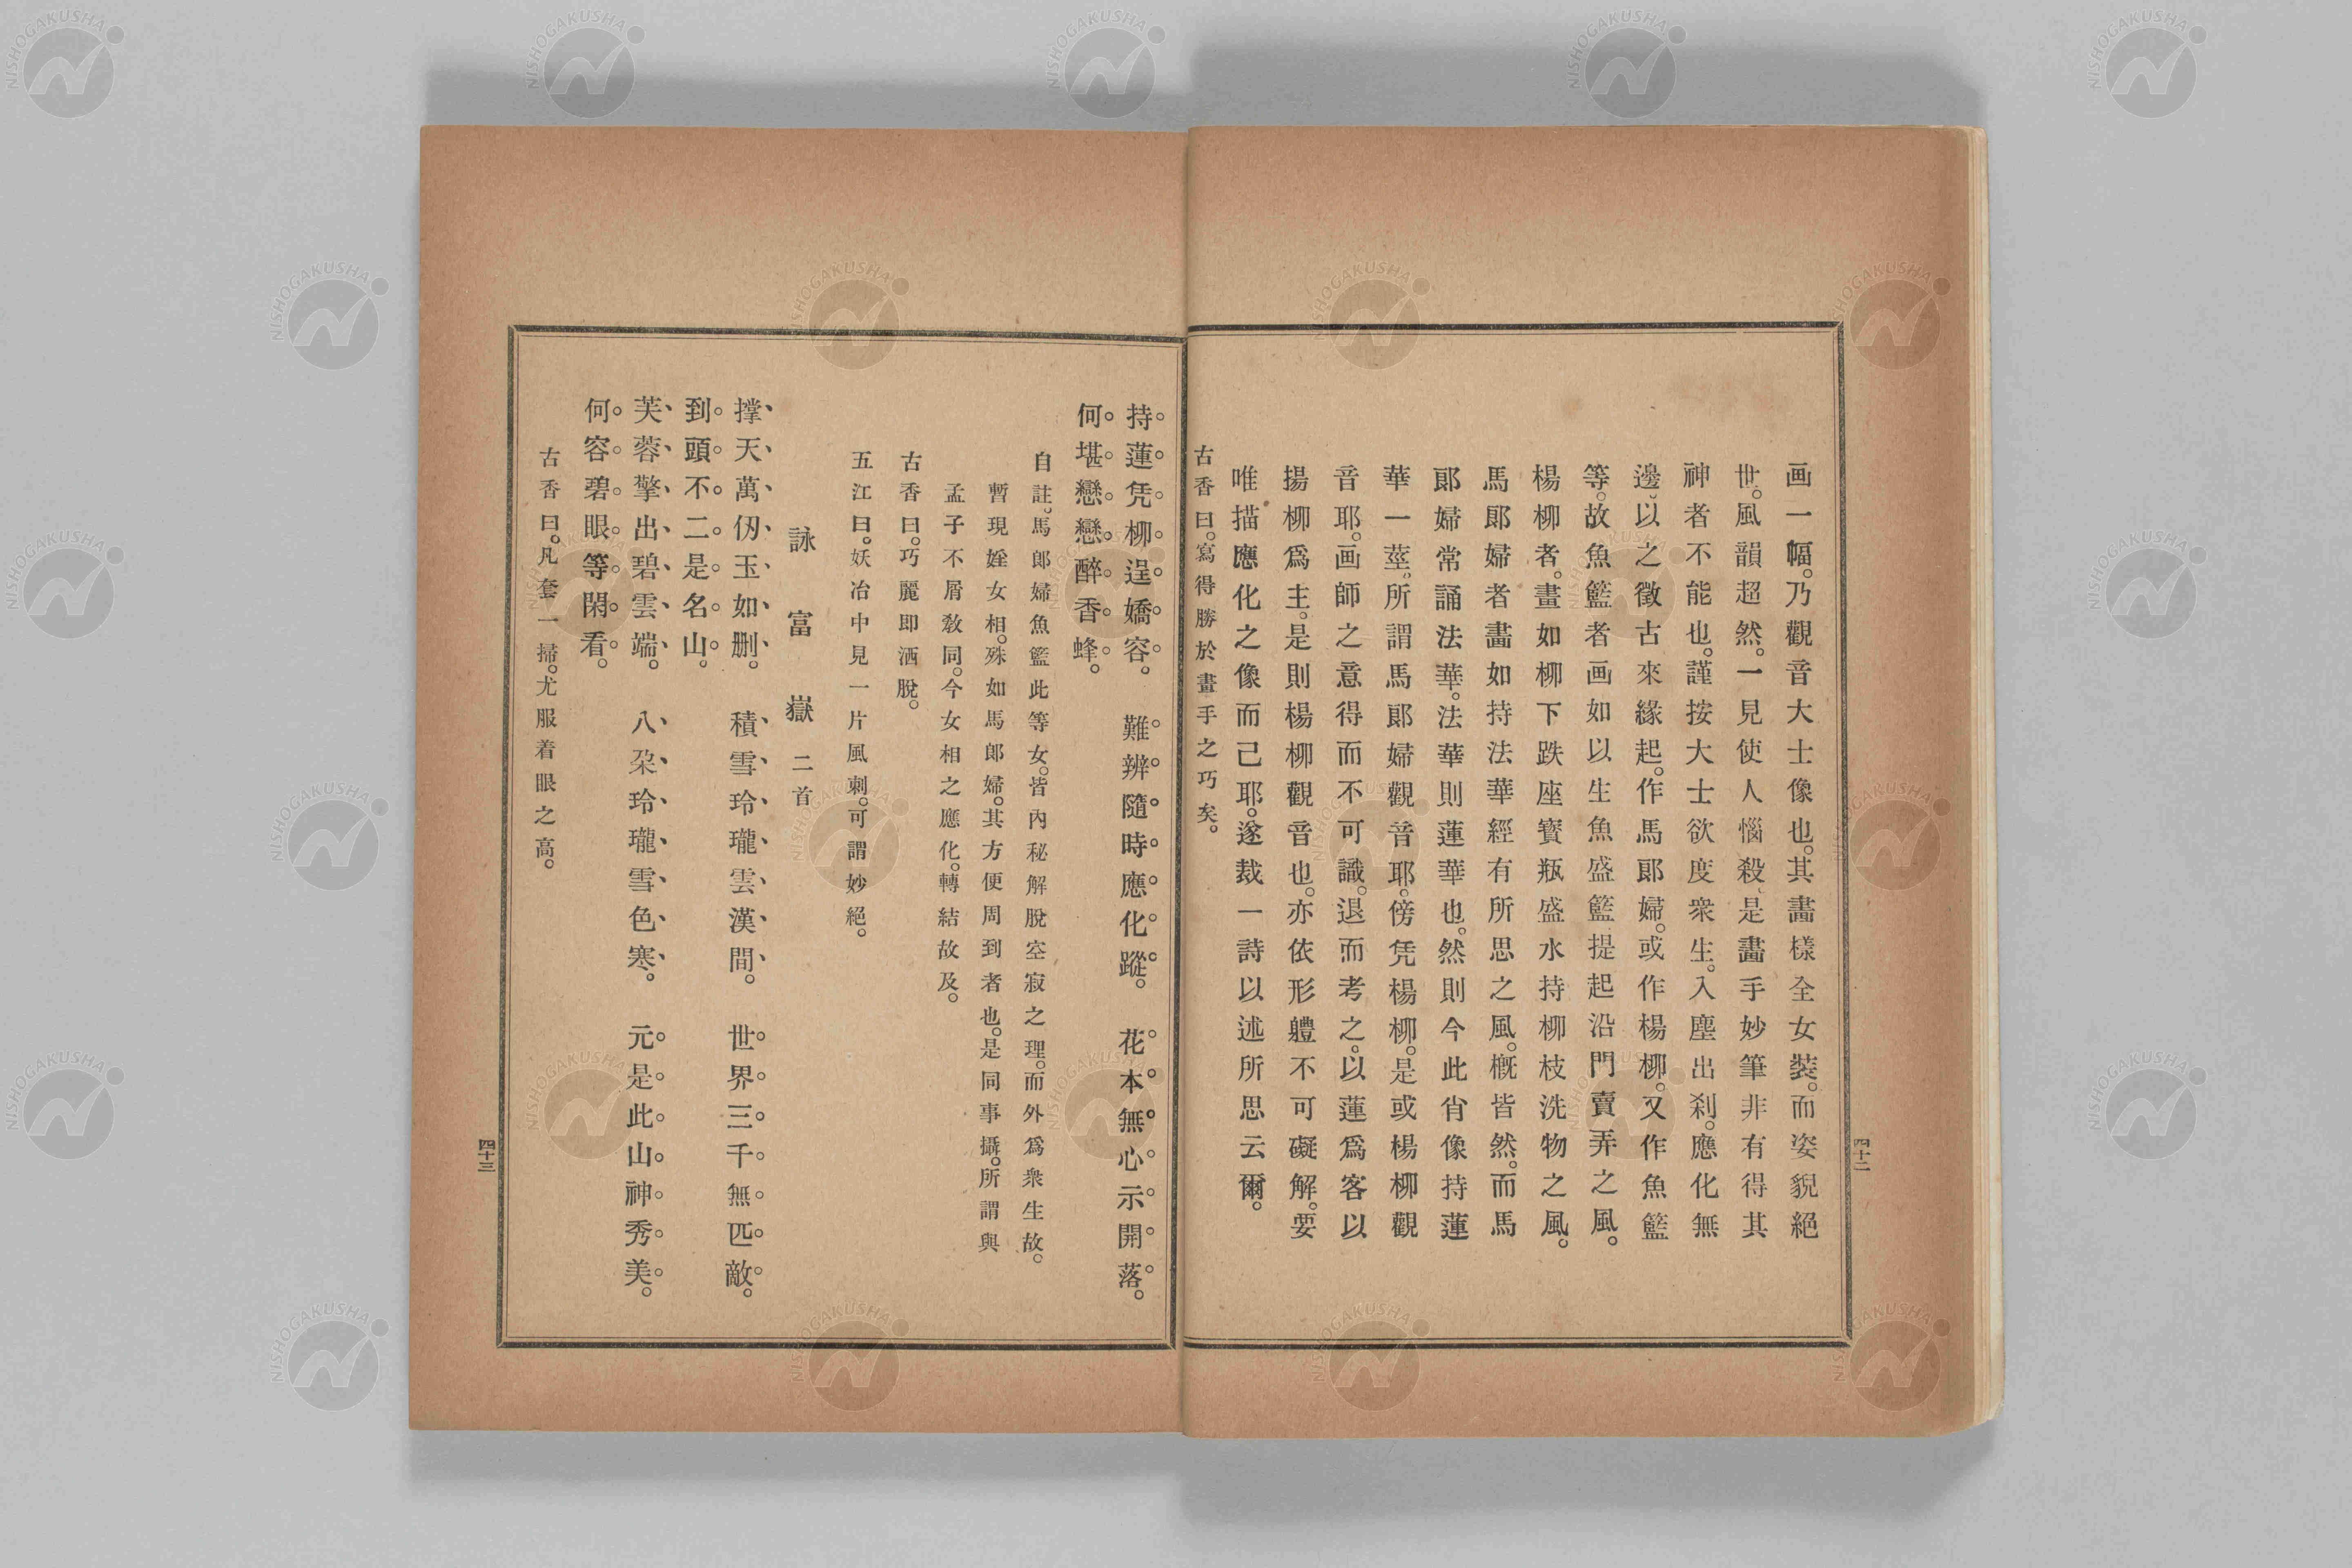 画一幅。乃觀音大士像也。其畵樣全女裝。而姿貌絕
世。風韻超然。一見使人惱殺、是畵手妙筆非有得其
神者不能也。謹按大士欲度衆生。入塵出刹。應化無
邊、以之徵古來緣起。作馬郞婦。或作楊柳。又作魚籃
等。故魚籃者画如以生魚盛籃提起沿門賣弄之風。
楊柳者。畫如柳下趺座寳瓶盛水持柳枝洗物之風。
馬郞婦者畵如持法華經有所思之風。槪皆然。而馬
郞婦常誦法華。法華則蓮華也。然則今此肖像持蓮
華一莖。所謂馬郞婦觀音耶。傍凭楊柳。是或楊柳觀
音耶。画師之意得而不可識。退而考之。以蓮爲客以
揚柳爲主。是則楊柳觀音也。亦依形軆不可礙解。要
唯描應化之像而已耶。遂裁一詩以述所思云爾。
古香曰。寫得勝於畫手之巧矣。
四十二
持蓮凭柳逞嬌容。 難辨隨時應化蹤。 花本無心示開落。
何堪戀戀醉香蜂。
自註。馬郞婦魚籃此等女。皆內秘解脫空寂之理。而外爲衆生故。
暫現婬女相。殊如馬郞婦。其方便周到者也。是同事攝。所謂與
孟子不屑敎同。今女相之應化。轉結故及。
古香曰。巧麗卽洒脫。
五江曰。妖冶中見一片風刺。可謂妙絕。
詠富嶽 二首
撑天萬仞玉如刪。 積雪玲瓏雲漢間。 世界三千無匹敵。
到頭不二是名山。
芙蓉擎出碧雲端。 八朶玲瓏雪色寒。 元是此山神秀美。
何容碧眼等閑看。
古香曰。凡套一掃。尤服着眼之高。
四十三
NISHOGAKUSHA